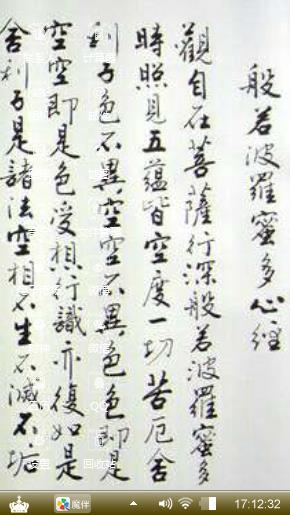 般若波羅蜜多心經
觀自在菩薩行深般若波羅蜜多
時照見五蘊皆空度一切苦厄舍
利子色不異空空不異色色即是
空空即是色受想行識亦復如是
舍利子是諸法空相不生不滅不垢
回收站
魔伴
17:12:32